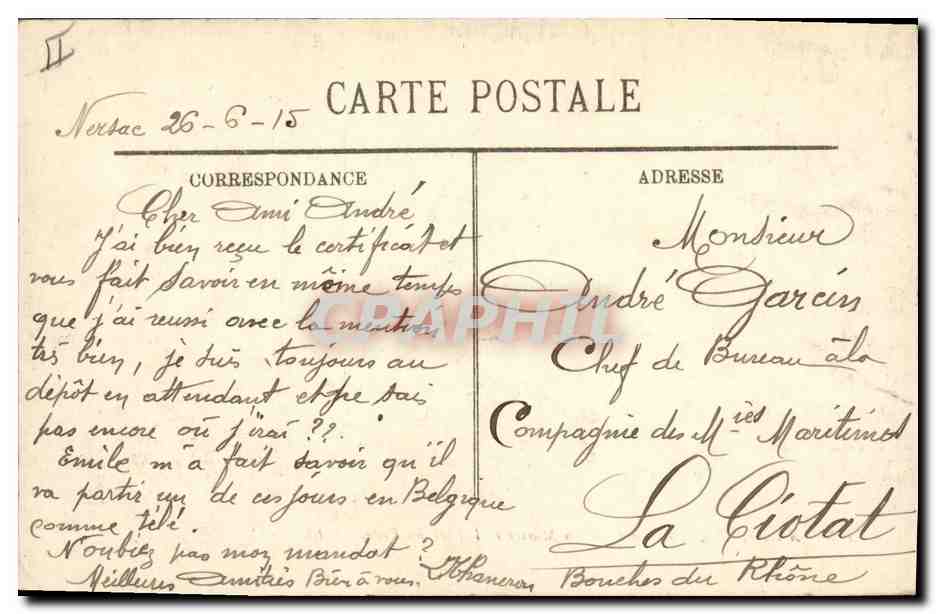 II
CARTE POSTALE
Nersac 26-6-15
CORRESPONDANCE
Cher Ami André
J'ai bien reçu le certificat et
vous fait savoir en même temps
que j'ai reussi avec la mention
très bien, je suis toujours au
dépôt en attendant et je sais
pas encore où j'irai ??.
Emile m'a fait savoir qu'il
va partir un de ces jours en Belgique
comme télé.
N'oubiez pas mon mandat ?
Meilleures Amitiés Bien à vous
ADRESSE
Monsieur
André Garcin
Chef de Bureau à la
Compagnie des M-ies Maritimes
La Ciotat
Bouches du Rhône
CPAPHIL